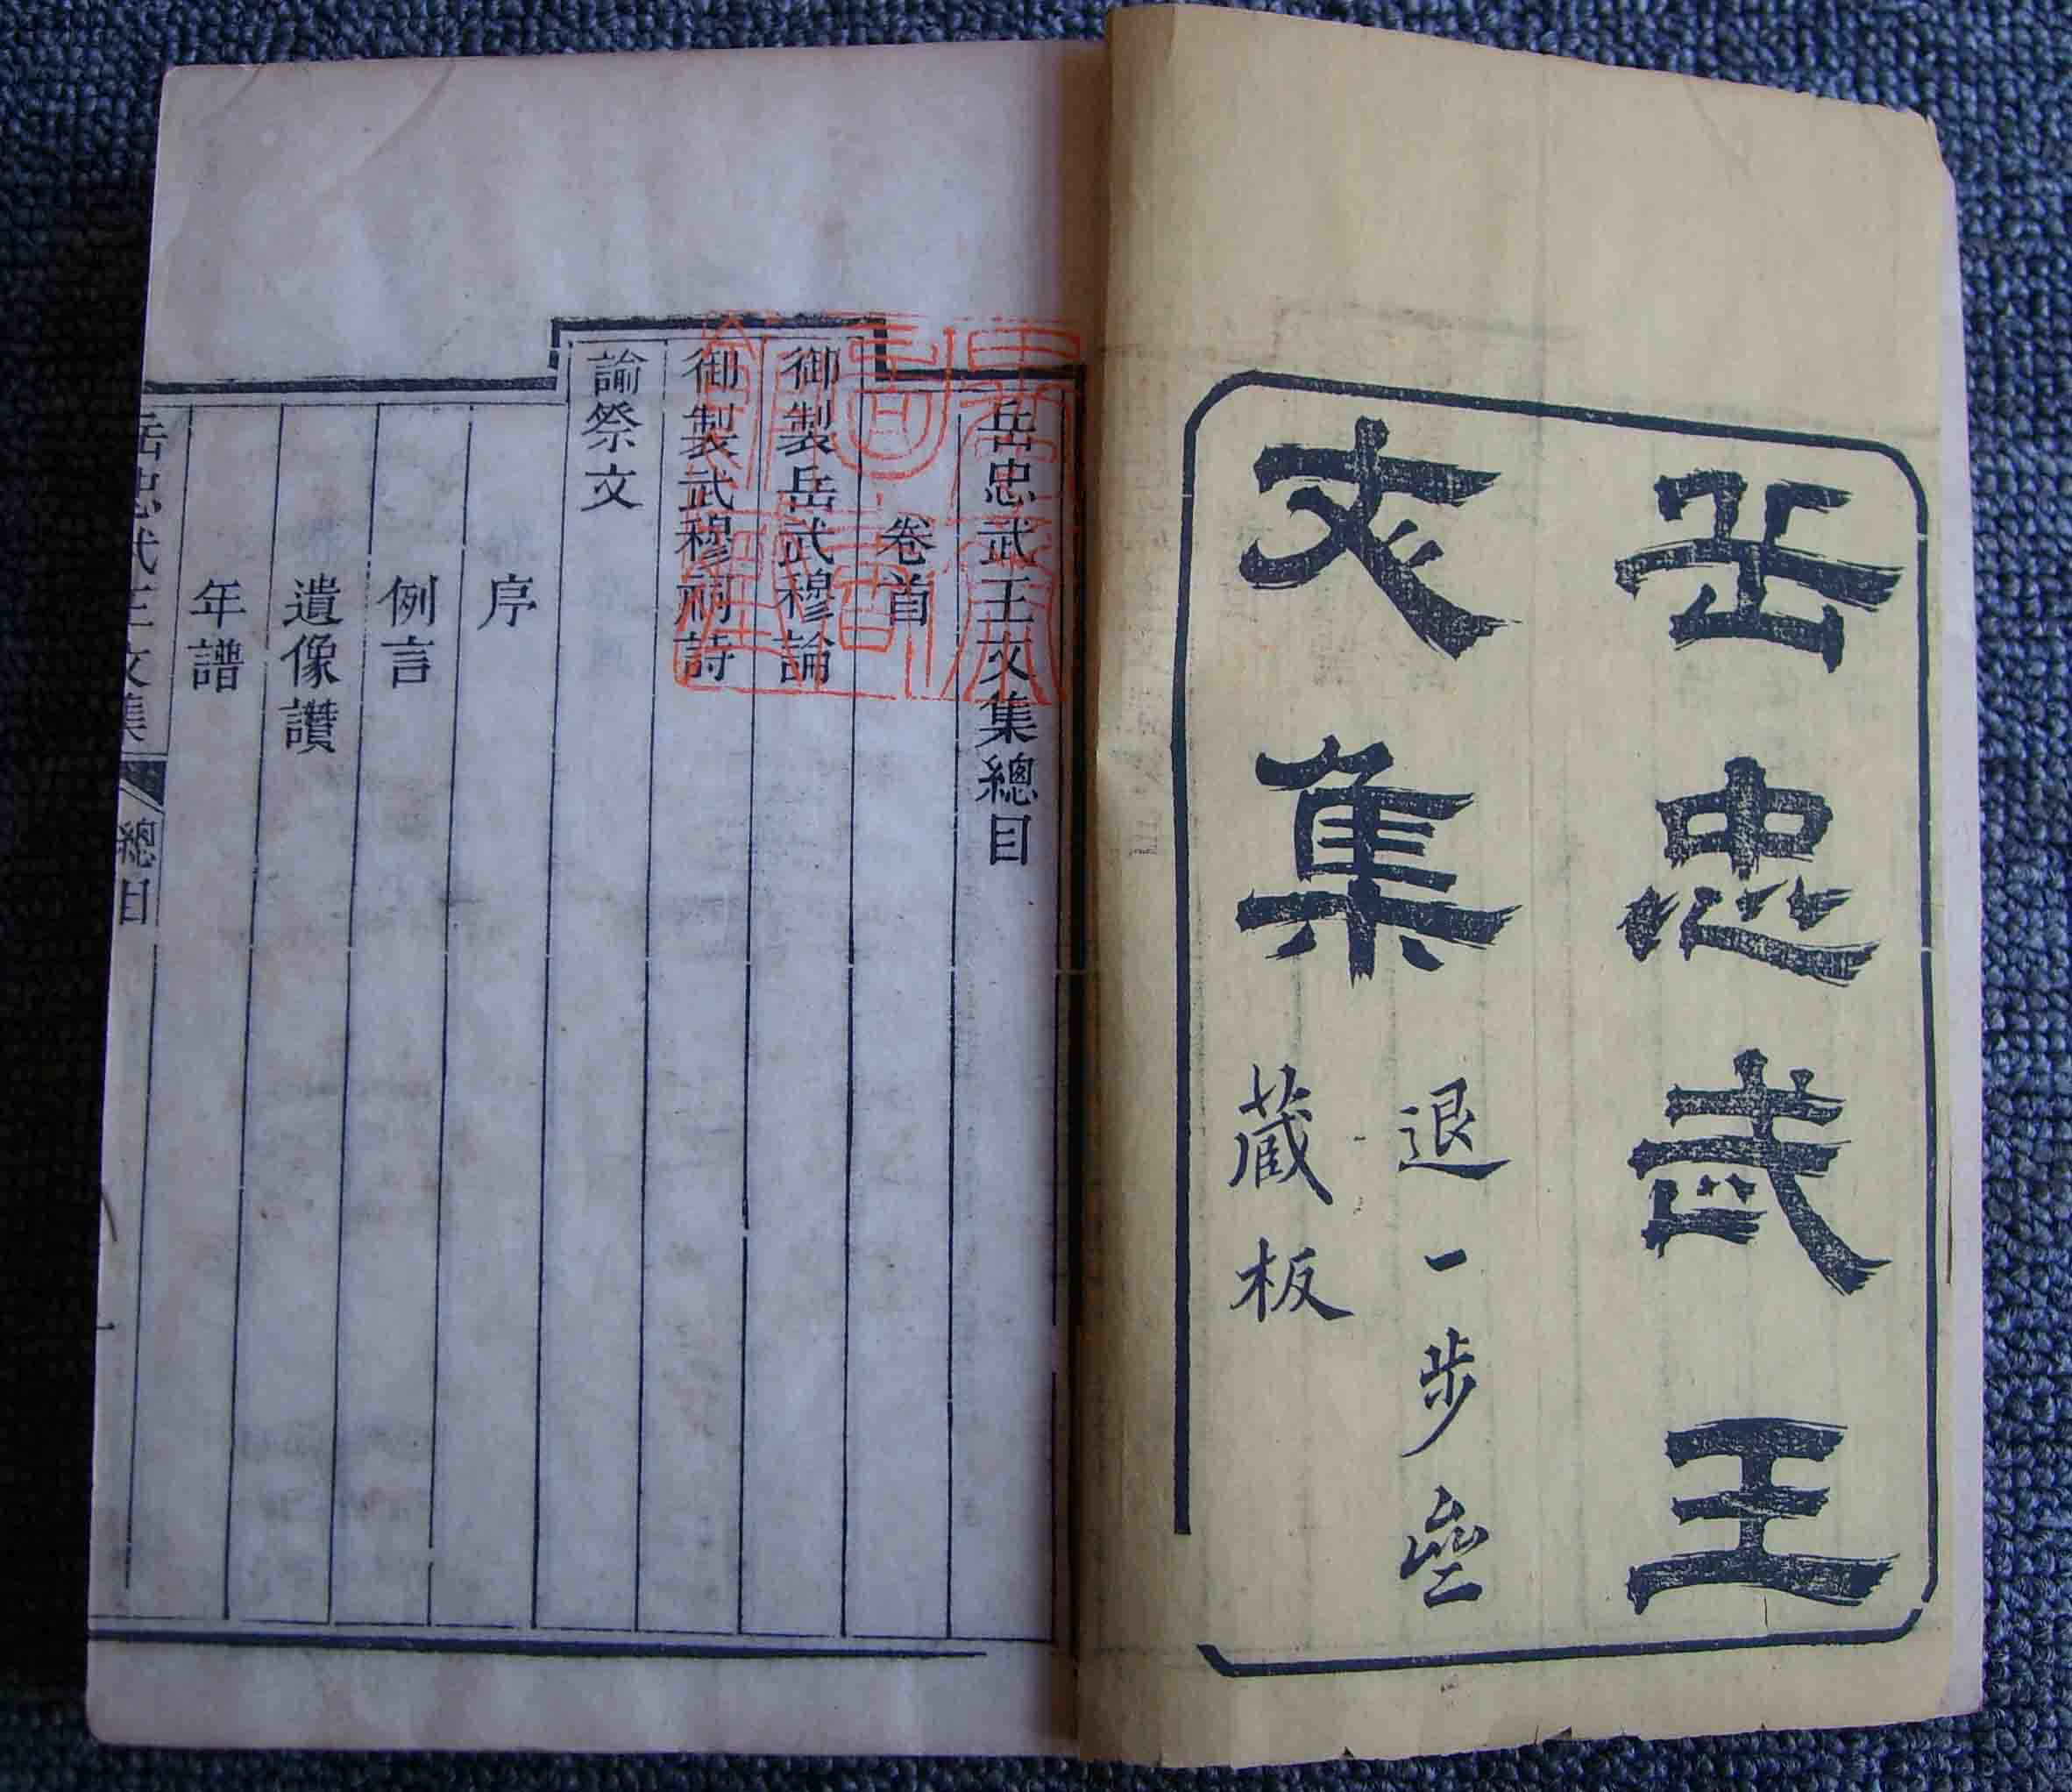 岳忠武王
文集
退一步壘
藏板
岳忠武王文集總目
卷首
御製岳武穆論
御製武穆祠詩
諭祭文
序
例言
遺像讚
年譜
岳忠武王文集 總目